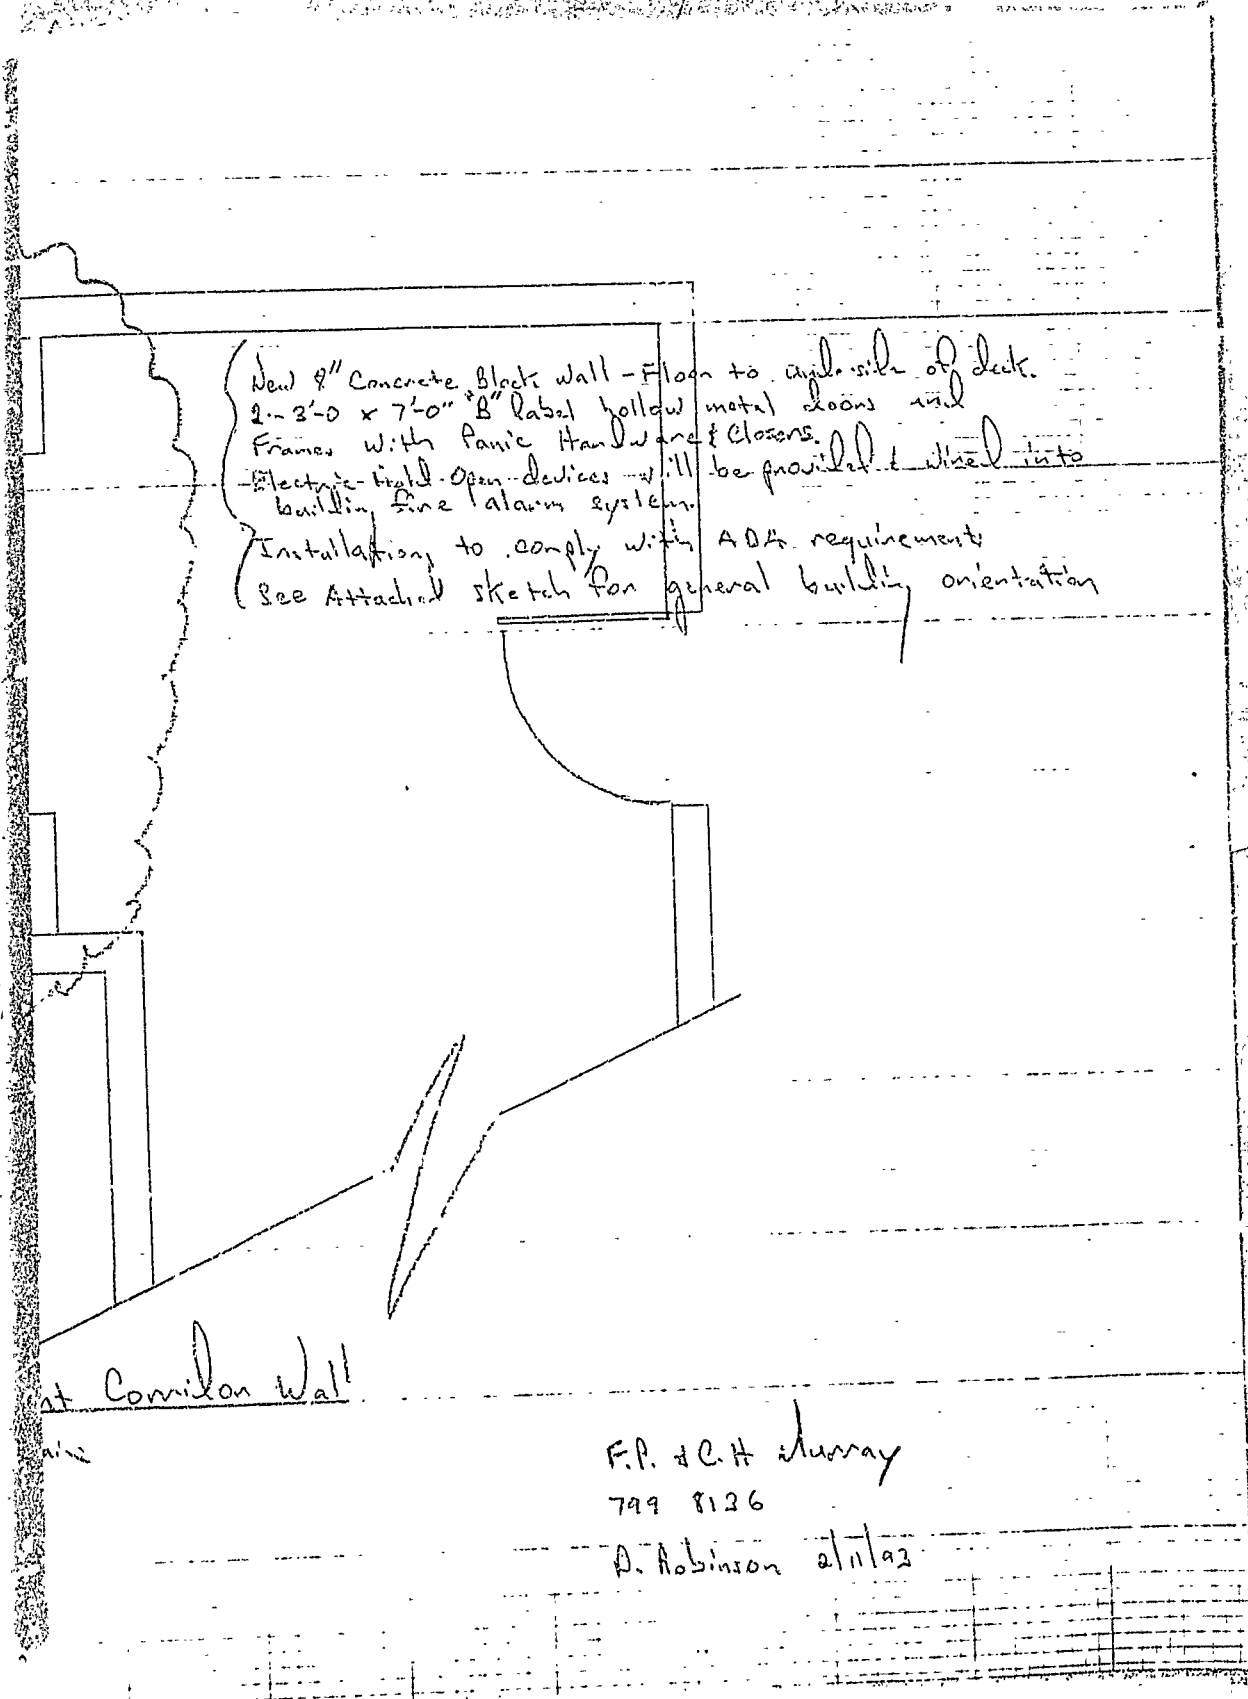 New 8" Concrete Block Wall - Floor to underside of deck.
2 - 3'-0 x 7'-0" "B" label hollow metal doors and
Frames with Panic Hardware & Closers.
Electric Hold Open devices will be provided & wired into
building fire alarm system.
Installation to comply with ADA requirements
See Attached sketch for general building orientation
nt Corridor Wall
F.P. & C.H Murray
799 8136
D. Robinson 2/11/93